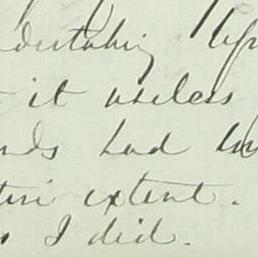 dertaking
it useless
nds had
extent.
I did.